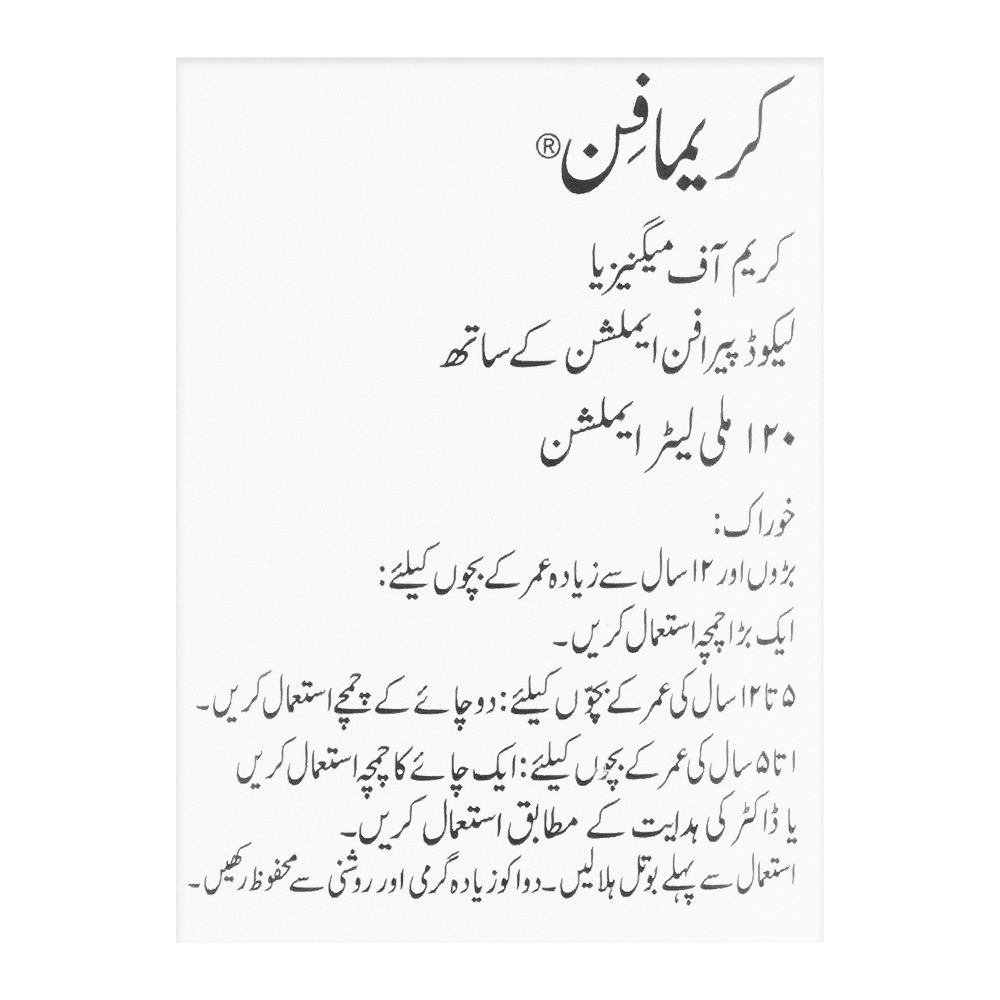 کریمافِن®
کریم آف میگنیزیا
لیکوڈ پیرافن ایملشن کے ساتھ
۱۲۰ ملی لیٹر ایملشن
خوراک:
بڑوں اور ۱۲ سال سے زیادہ عمر کے بچوں کیلئے:
ایک بڑا چمچہ استعمال کریں۔
۵ تا ۱۲ سال کی عمر کے بچّوں کیلئے: دو چائے کے چمچے استعمال کریں۔
۱ تا ۵ سال کی عمر کے بچوں کیلئے: ایک چائے کا چمچہ استعمال کریں
یا ڈاکٹر کی ہدایت کے مطابق استعمال کریں۔
استعمال سے پہلے بوتل ہلالیں۔ دوا کو زیادہ گرمی اور روشنی سے محفوظ رکھیں۔